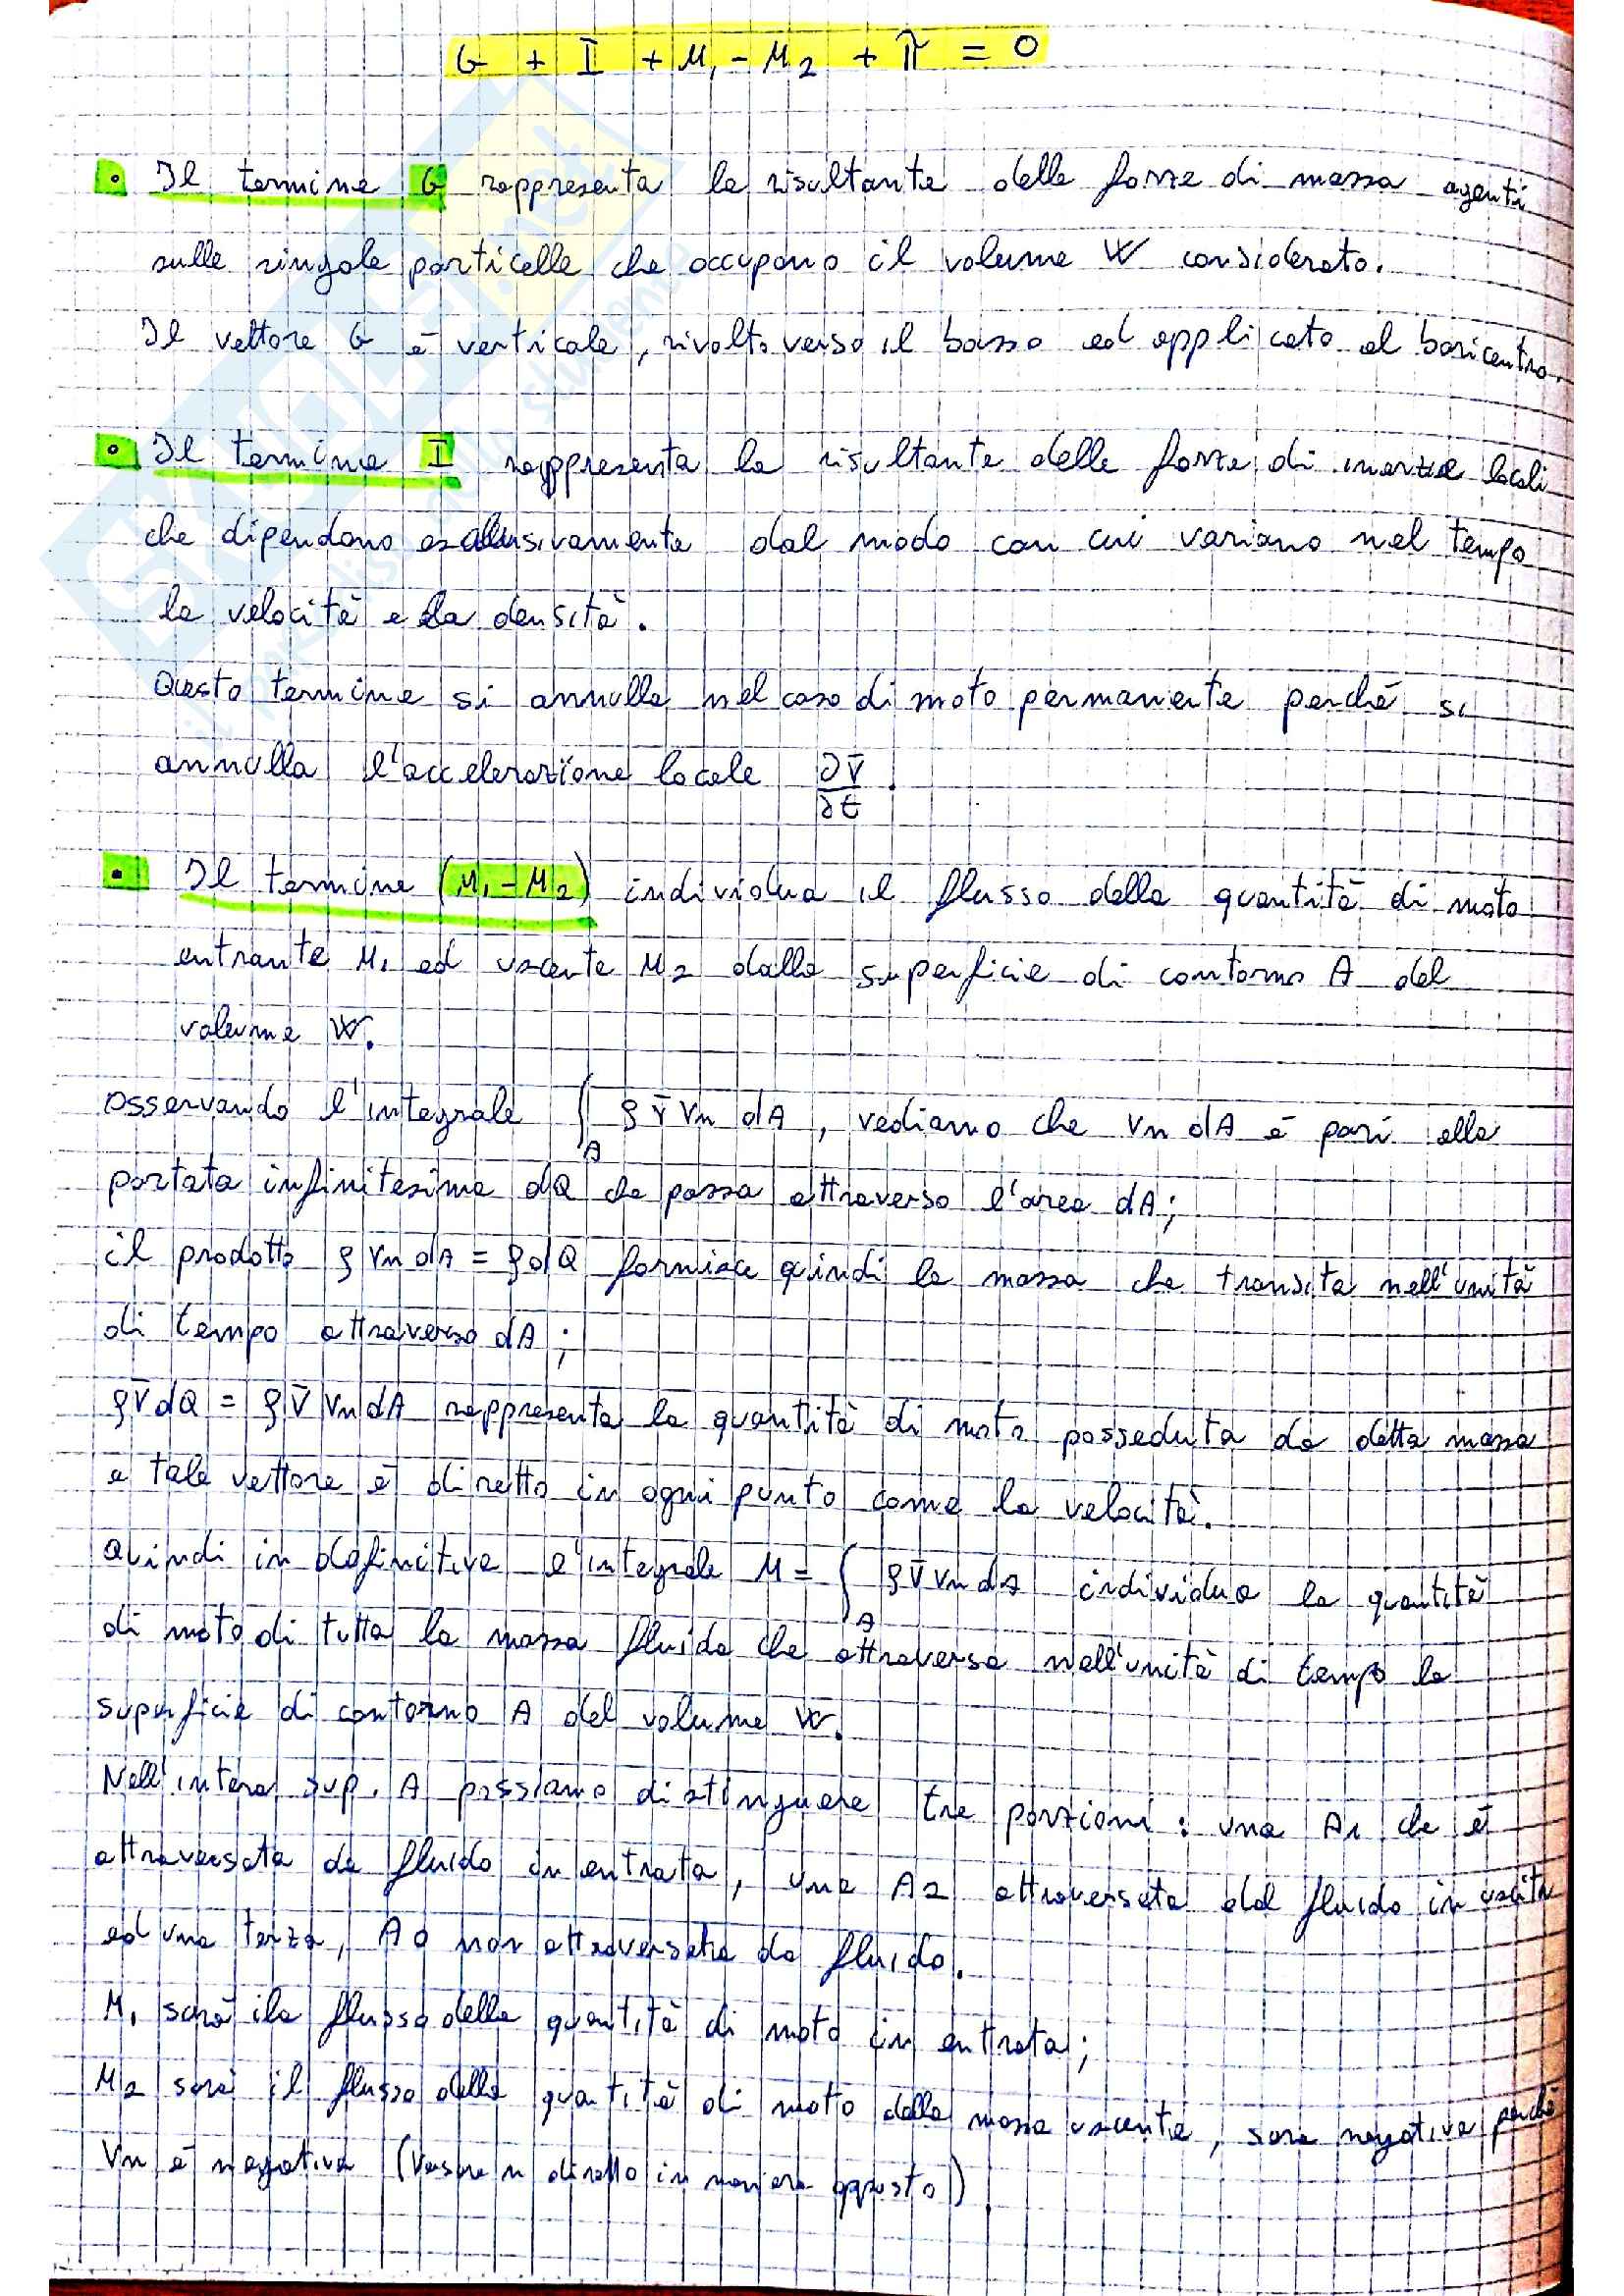 G + I + M₁ - M₂ + π = 0
• Il termine G rappresenta la risultante delle forze di massa agenti
sulle singole particelle che occupano il volume W considerato.
Il vettore G è verticale, rivolto verso il basso ed applicato al baricentro.
• Il termine I rappresenta la risultante delle forze di inerzia locali
che dipendono esclusivamente dal modo con cui variano nel tempo
la velocità e la densità.
Questo termine si annulla nel caso di moto permanente perché si
annulla l'accelerazione locale ∂v̄/∂t.
• Il termine (M₁ - M₂) individua il flusso della quantità di moto
entrante M₁ ed uscente M₂ dalla superficie di contorno A del
volume W.
Osservando l'integrale ∫_A ρ v̄ vn dA, vediamo che vn dA è pari alla
portata infinitesima dQ che passa attraverso l'area dA;
il prodotto ρ vn dA = ρ dQ fornisce quindi la massa che transita nell'unità
di tempo attraverso dA;
ρ v̄ dQ = ρ v̄ vn dA rappresenta la quantità di moto posseduta da detta massa
e tale vettore è diretto in ogni punto come la velocità.
Quindi in definitiva l'integrale M = ∫_A ρ v̄ vn dA individua la quantità
di moto di tutta la massa fluida che attraversa nell'unità di tempo la
superficie di contorno A del volume W.
Nell'intera sup. A possiamo distinguere tre porzioni: una A1 che è
attraversata da fluido in entrata, una A2 attraversata dal fluido in uscita
ed una terza, A0 non attraversata da fluido.
M₁ sarà il flusso della quantità di moto in entrata;
M2 sarà il flusso della quantità di moto della massa uscente, sarà negativa perché
Vn è negativa (versore n diretto in maniera opposta)